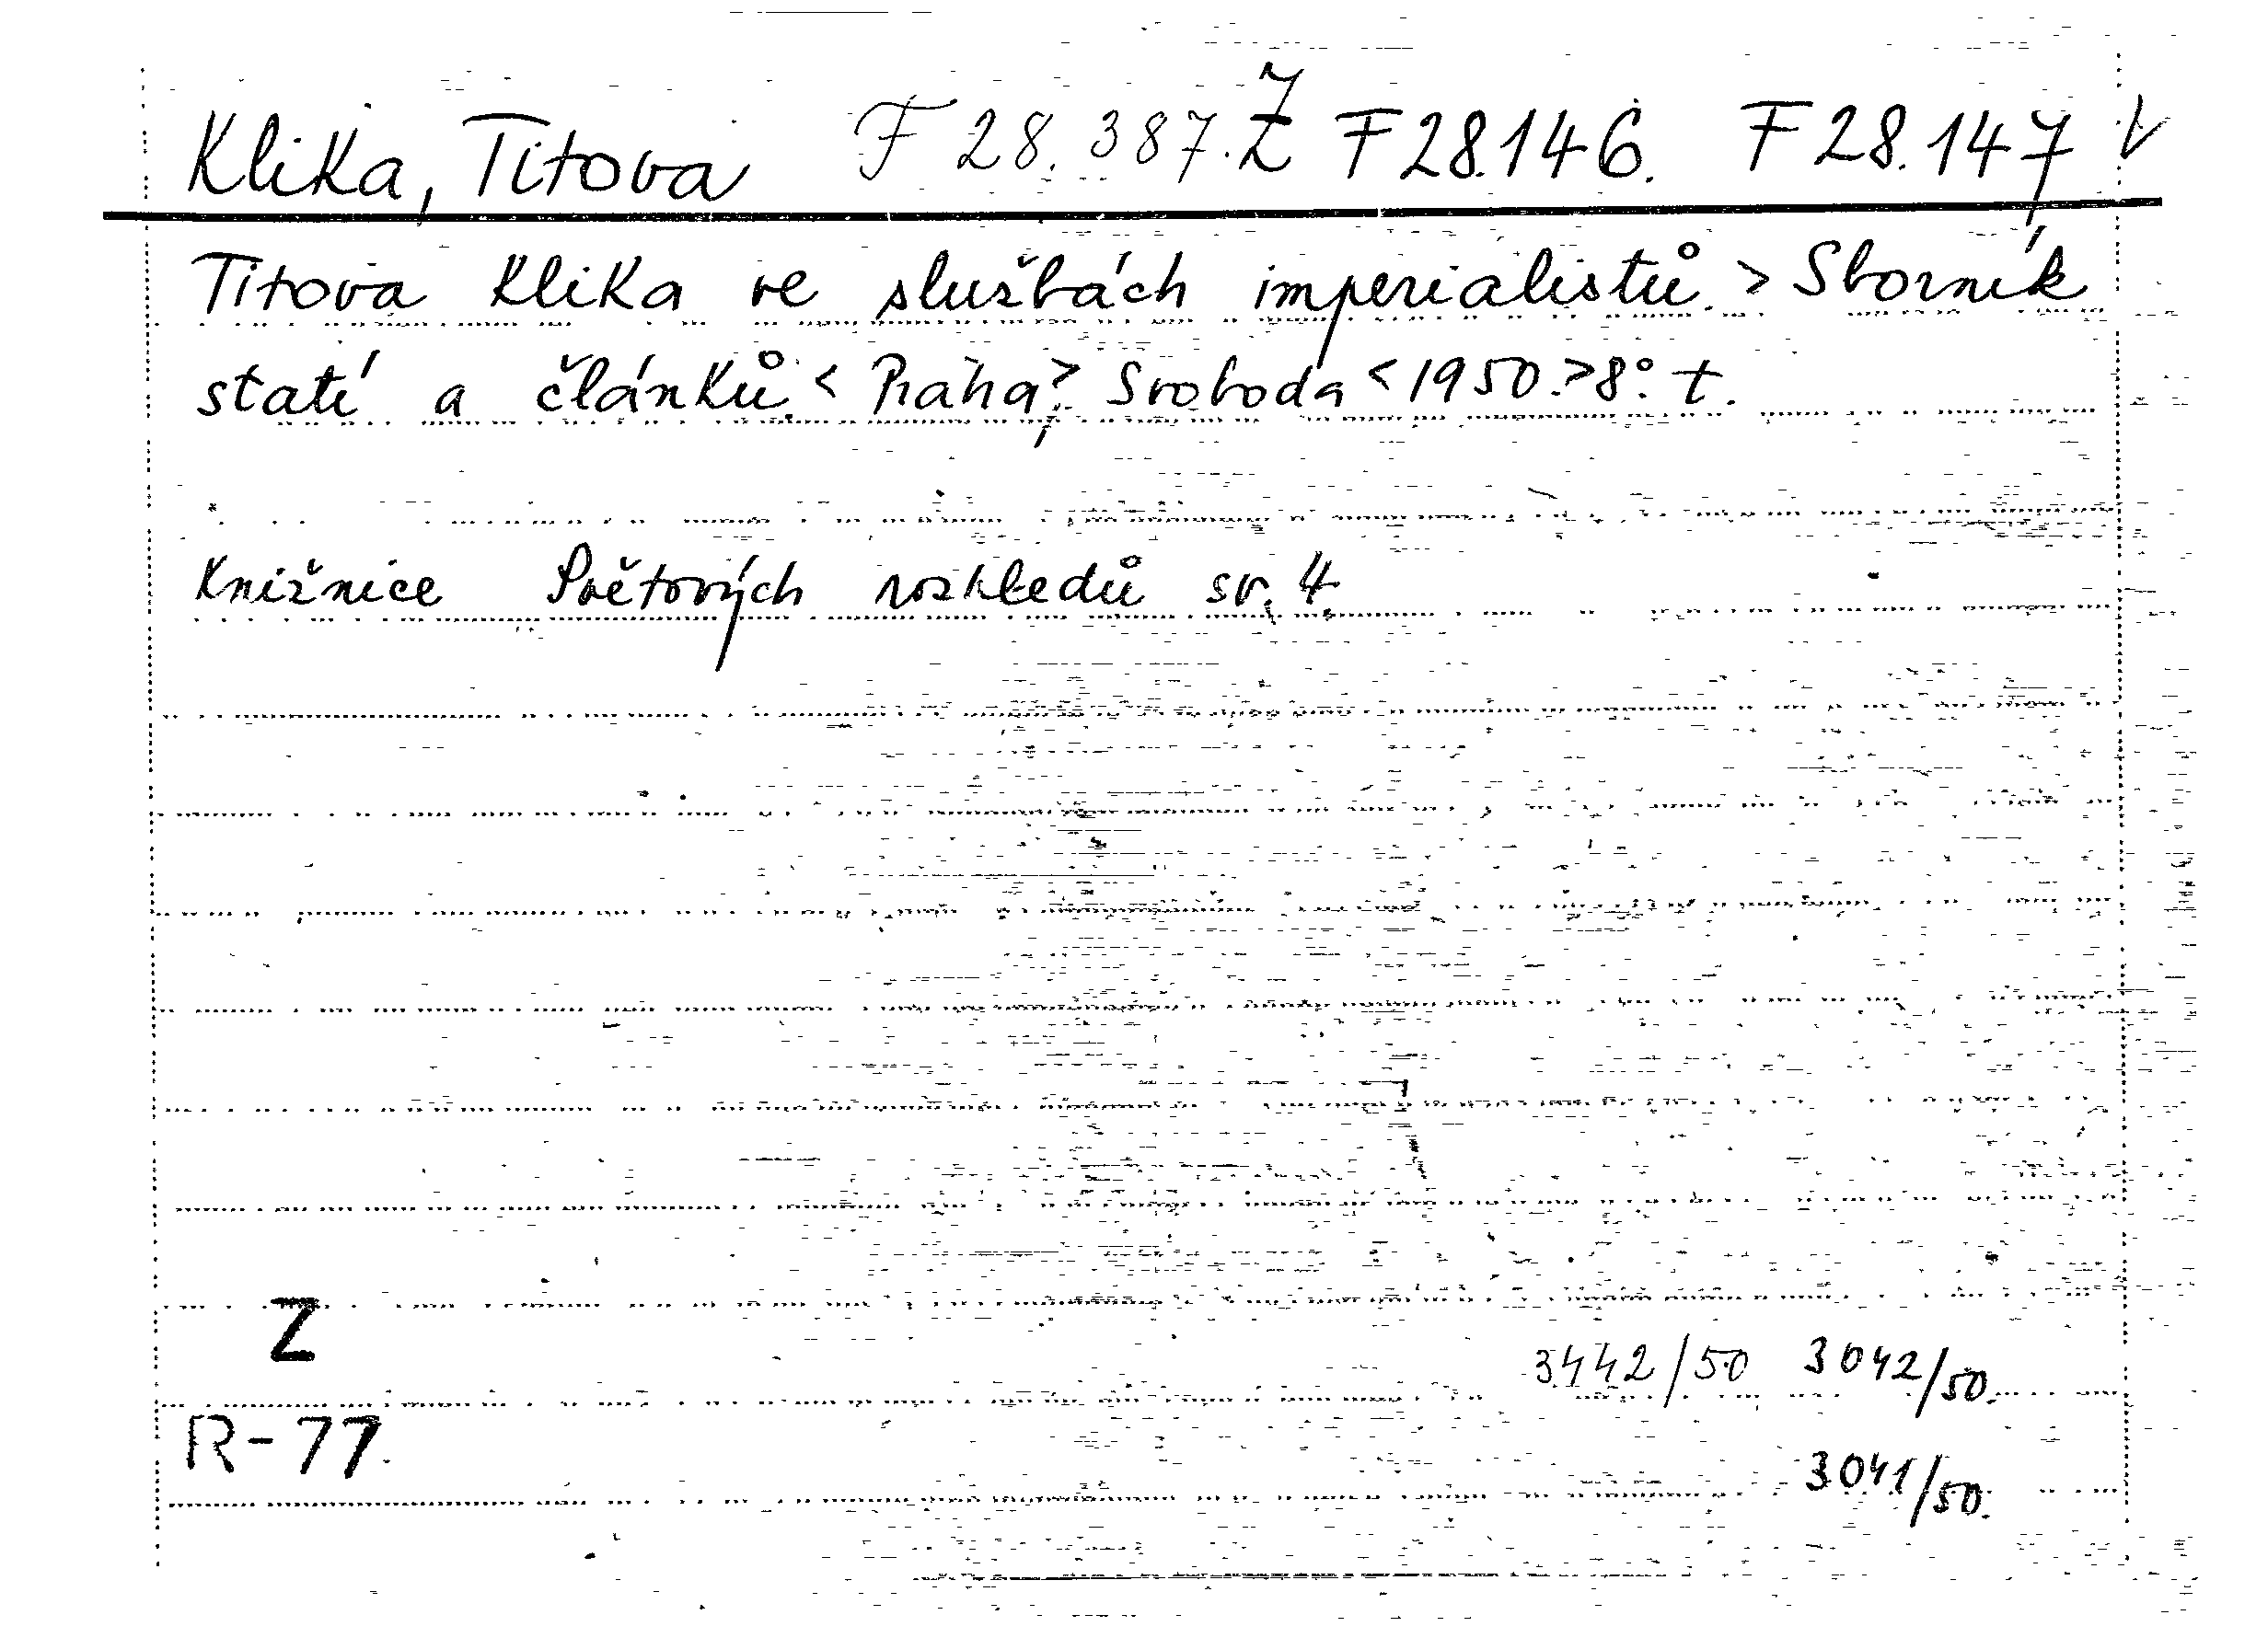 Klika, Titova F 28.387. Ž F 28.146. F 28.147 V
Titova klika ve službách imperialistů. > Sborník
statí a článků. < Praha, > Svoboda < 1950. > 8°. t.
Knižnice Světových rozhledů sv. 4.
Z
3442/50 3042/50.
R-77.
3041/50.